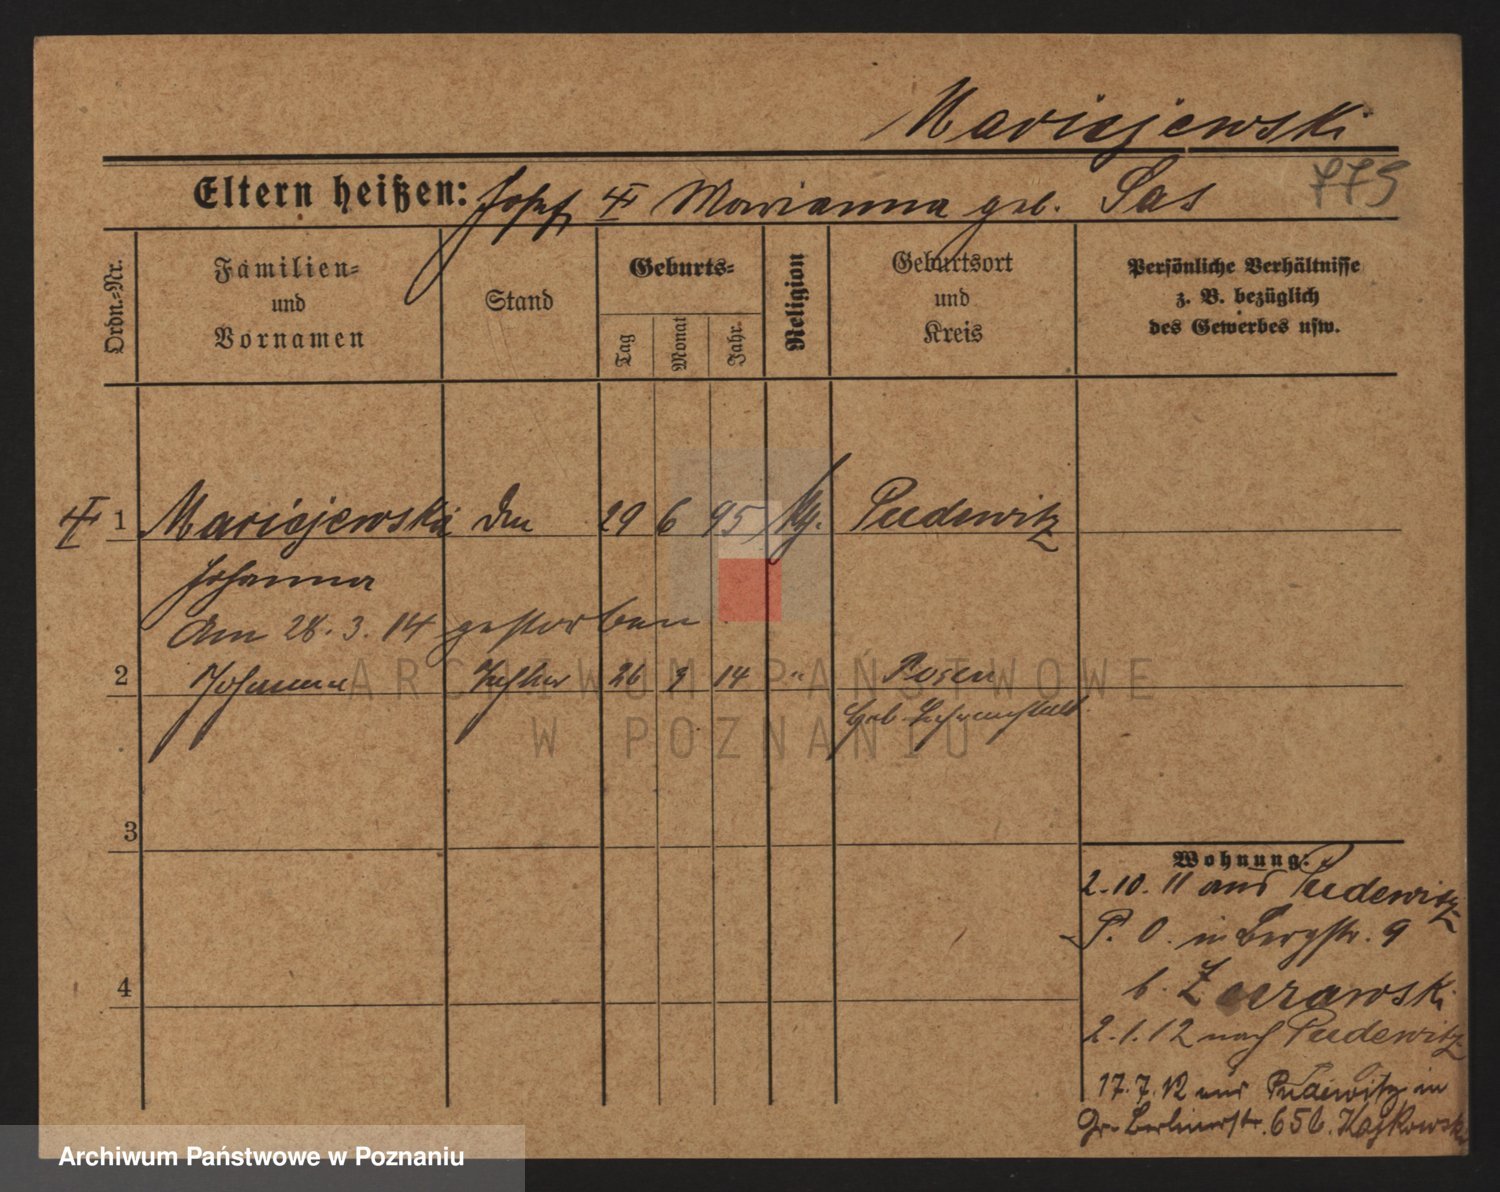 Maricijewski
775
Eltern heißen: Josef ⚔ Marianna geb. Sas
Ordn.-Nr.
Familien-
und
Vornamen
Stand
Geburts-
Tag
Monat
Jahr.
Religion
Geburtsort
und
Kreis
Persönliche Verhältnisse
z. B. bezüglich
des Gewerbes usw.
1 29 6 95 Pudewitz
Johanna
Am 28. 3. 14 gestorben
2 Johanna Tochter 26 3 14 " Posen
Geb.
3
4
Wohnung:
2.10.11 aus Pudewitz
P. O. in Bergstr. 9
b. Zurawski
2.1.12 nach Pudewitz
17.7.12 aus Pudewitz in
Gr. Berlinerstr. 65 b. Kajkowski
ARCHIWUM PAŃSTWOWE
W POZNANIU
Archiwum Państwowe w Poznaniu